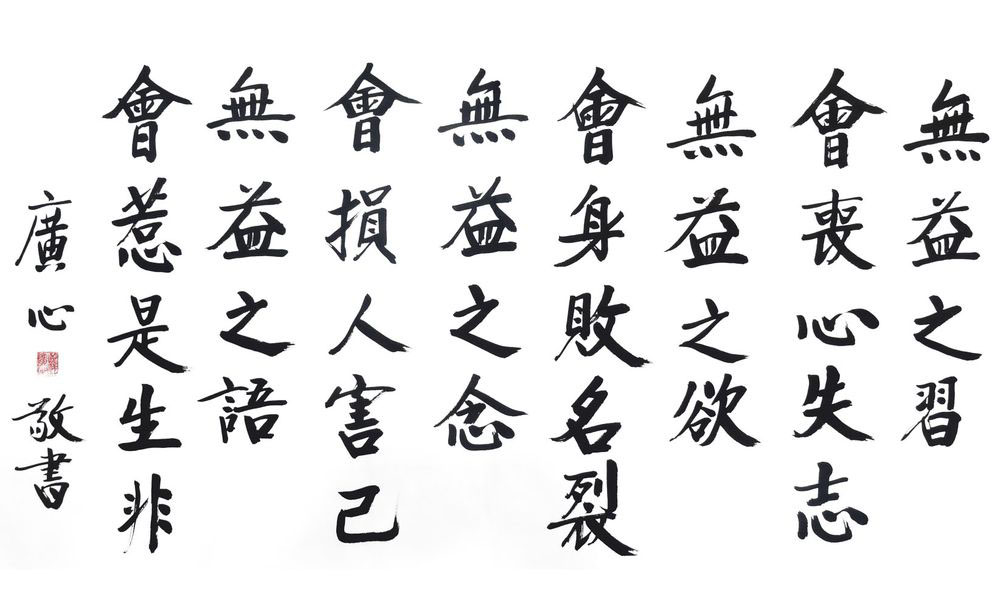 無益之習
會喪心失志
無益之欲
會身敗名裂
無益之念
會損人害己
無益之語
會惹是生非
廣心 敬書